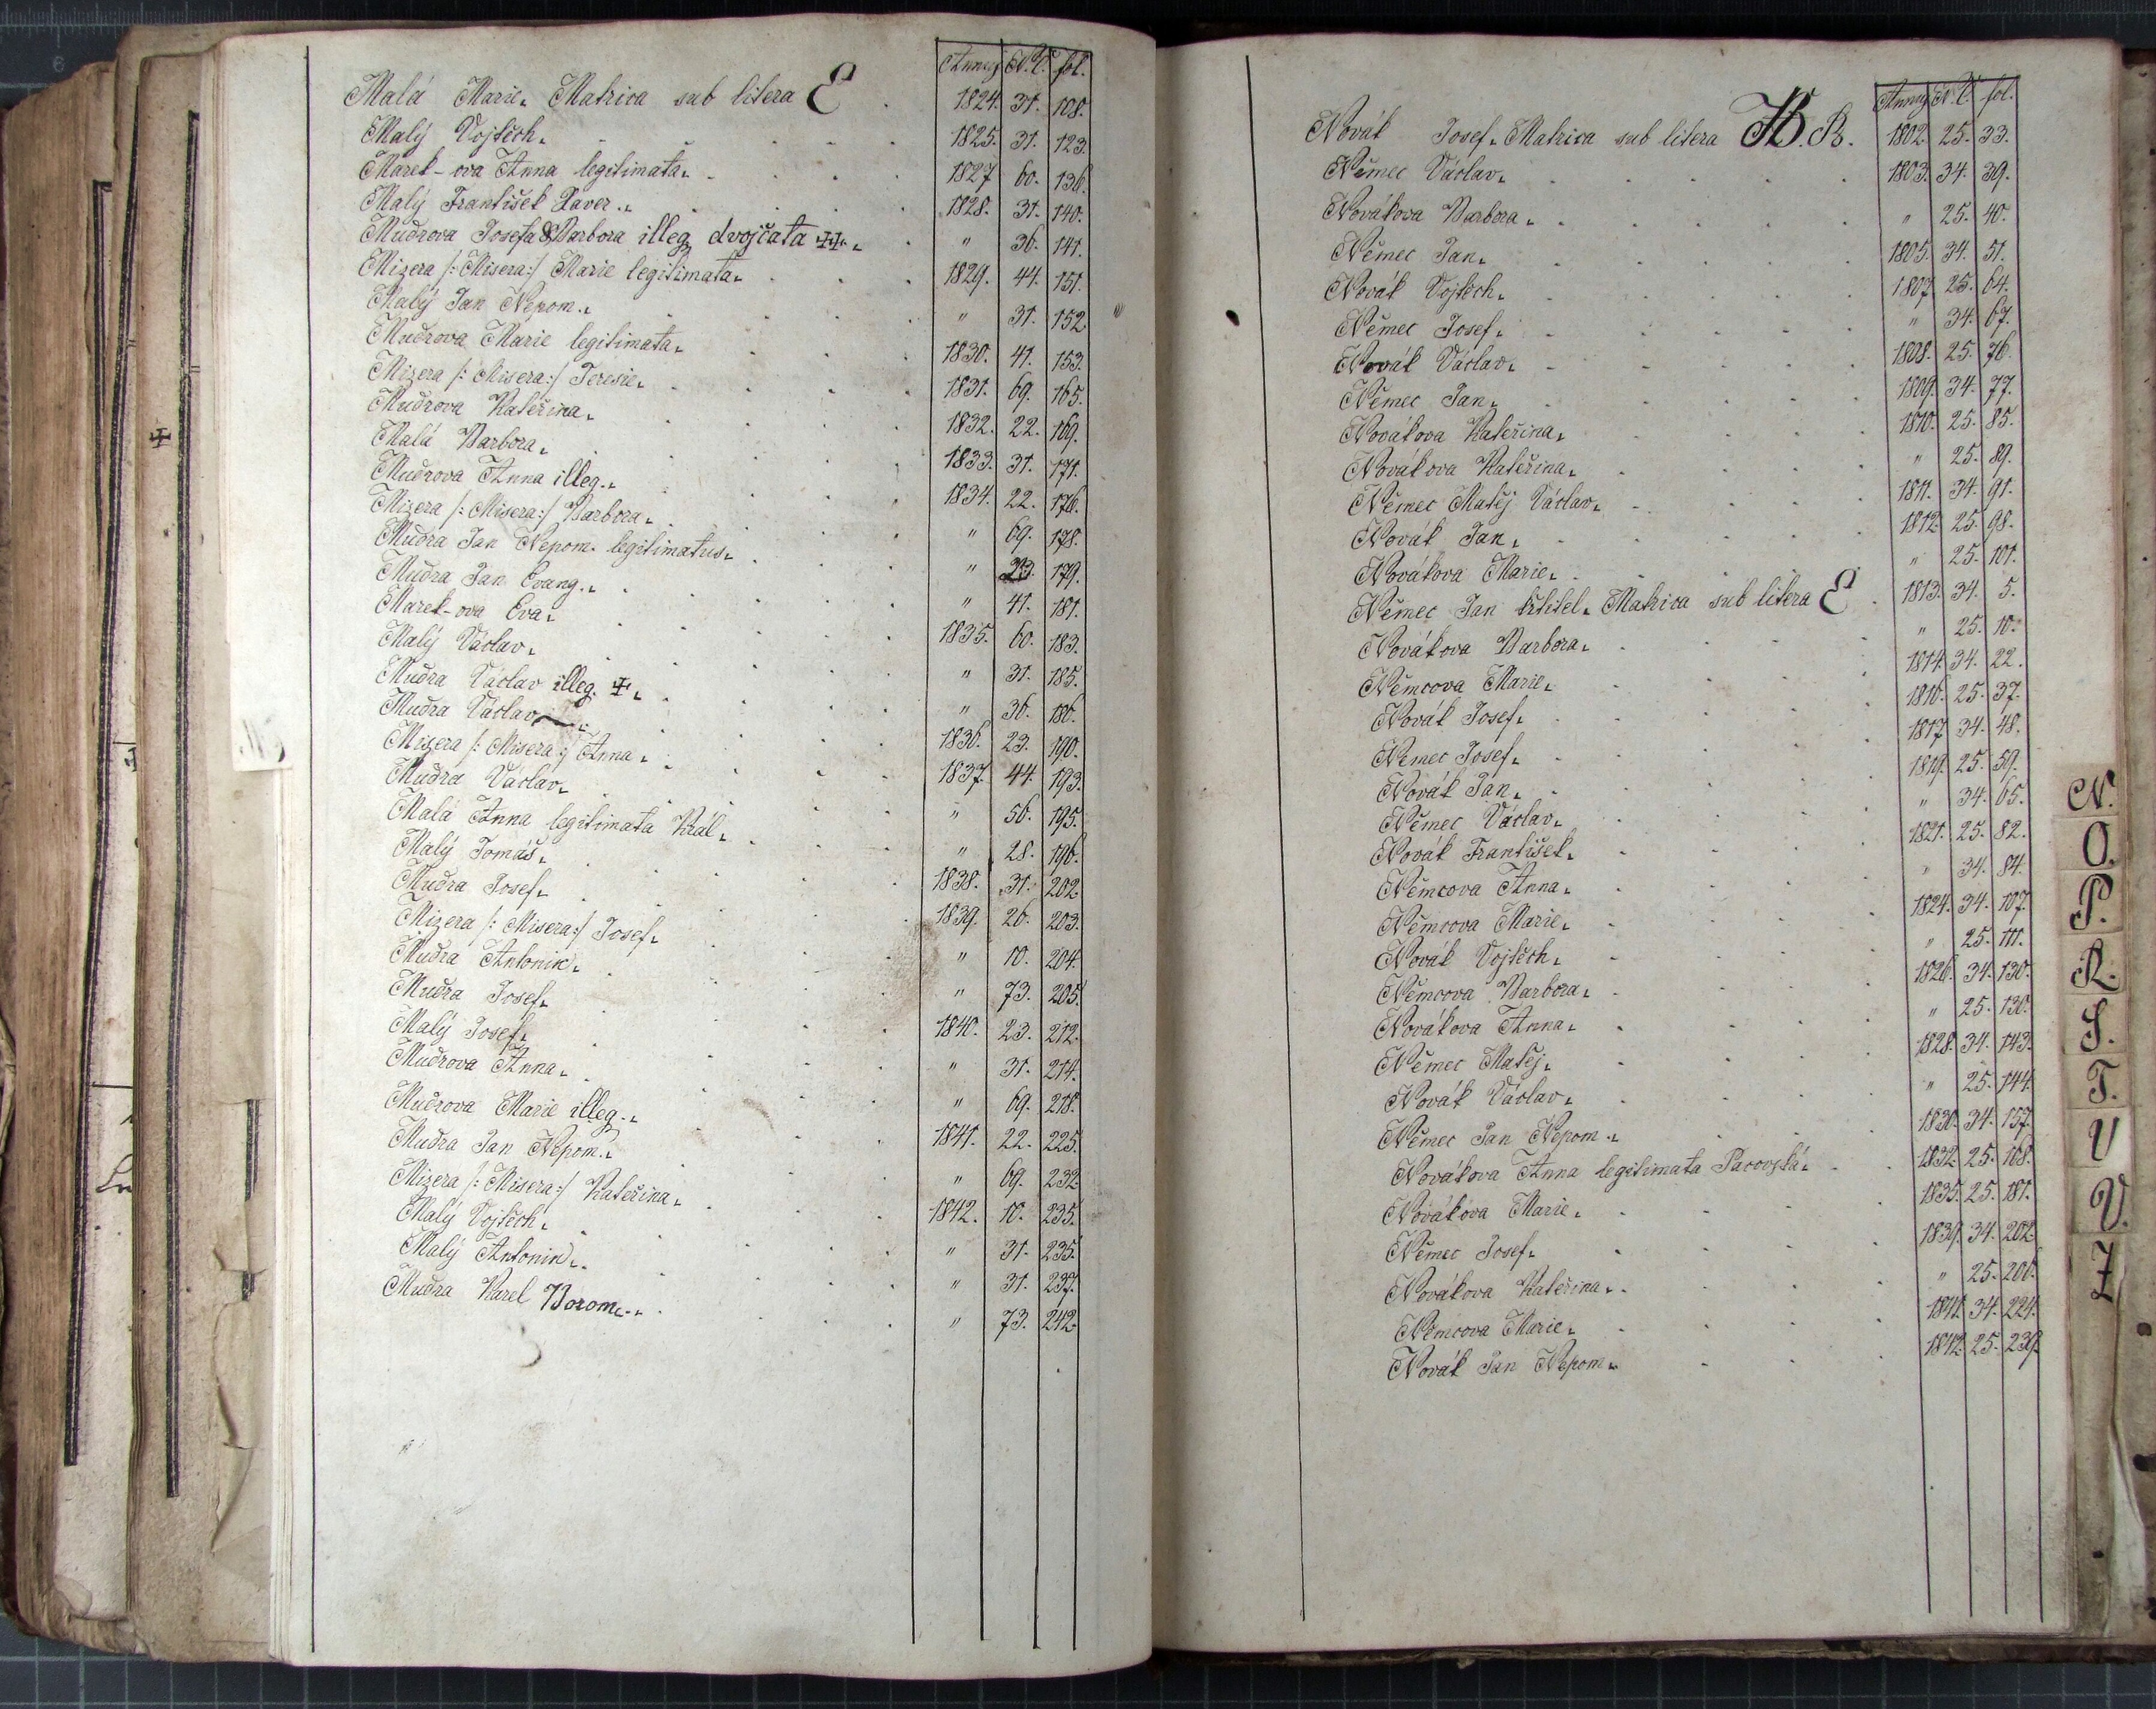 Annus N.C. fol.
Malá Marie. Matrica sub litera E. 1824. 31. 108.
Malý Vojtěch. 1825. 31. 123.
Marek-ova Anna legitimata. 1827 60. 136.
Malý František Xaver. 1828. 31. 140.
Mudrova Josefa & Barbora illeg. dvojčata ++. " 36. 141.
Mizera /:Misera:/ Marie legitimata. 1829. 44. 151.
Malý Jan Nepom. " 31. 152.
Mudrova Marie legitimata. 1830. 41. 153.
Mizera /:Misera:/ Teresie. 1831. 69. 165.
Mudrova Kateřina. 1832. 22. 169.
Malá Barbora. 1833. 31. 171.
Mudrova Anna illeg. 1834. 22. 176.
Mizera /:Misera:/ Barbora. " 69. 178.
Mudra Jan Nepom. legitimatus. " 23. 179.
Mudra Jan Evang. " 41. 181.
Marek-ova Eva. 1835. 60. 183.
Malý Václav. " 31. 185.
Mudra Václav illeg. +. " 36. 186.
Mudra Václav. 1836. 23. 190.
Mizera /:Misera:/ Anna. 1837. 44. 193.
Mudra Václav. " 56. 195.
Malá Anna legitimata Král. " 28. 196.
Malý Tomáš. 1838. 31. 202.
Mudra Josef. 1839. 26. 203.
Mizera /:Misera:/ Josef. " 10. 204.
Mudra Antonin. " 73. 205.
Mudra Josef. 1840. 23. 212.
Malý Josef. " 31. 214.
Mudrova Anna. " 69. 218.
Mudrova Marie illeg. 1841. 22. 225.
Mudra Jan Nepom. " 69. 232.
Mizera /:Misera:/ Kateřina. 1842. 10. 235.
Malý Vojtěch. " 31. 235.
Malý Antonin. " 31. 237.
Mudra Karel Borom. " 73. 242.
Annus N.C. fol.
Novák Josef. Matrica sub litera B. 1802. 25. 33.
Němec Václav. 1803. 34. 39.
Novákova Barbora. " 25. 40.
Němec Jan. 1805. 34. 51.
Novák Vojtěch. 1807. 25. 64.
Němec Josef. " 34. 67.
Novák Václav. 1808. 25. 76.
Němec Jan. 1809. 34. 77.
Novákova Kateřina. 1810. 25. 85.
Novákova Kateřina. " 25. 89.
Němec Matěj Václav. 1811. 34. 91.
Novák Jan. 1812. 25. 98.
Novákova Marie. " 25. 101.
Němec Jan křtitel. Matrica sub litera E. 1813. 34. 5.
Novákova Barbora. " 25. 10.
Němcova Marie. 1814. 34. 22.
Novák Josef. 1816. 25. 37.
Němec Josef. 1817 34. 48.
Novák Jan. 1819. 25. 59.
Němec Václav. " 34. 65.
Novák František. 1821. 25. 82.
Němcova Anna. " 34. 84.
Němcova Marie. 1824. 34. 107.
Novák Vojtěch. " 25. 111.
Němcova Barbora. 1826. 34. 130.
Novákova Anna. " 25. 130.
Němec Matěj. 1828. 34. 143.
Novák Václav. " 25. 144.
Němec Jan Nepom. 1830. 34. 157.
Novákova Anna legitimata Pacovská. 1832. 25. 168.
Novákova Marie. 1835. 25. 181.
Němec Josef. 1839. 34. 202.
Novákova Kateřina. " 25. 206.
Němcova Marie. 1841. 34. 224.
Novák Jan Nepom. 1842. 25. 239.
N.
O.
P.
R.
S.
T.
U
V.
Z